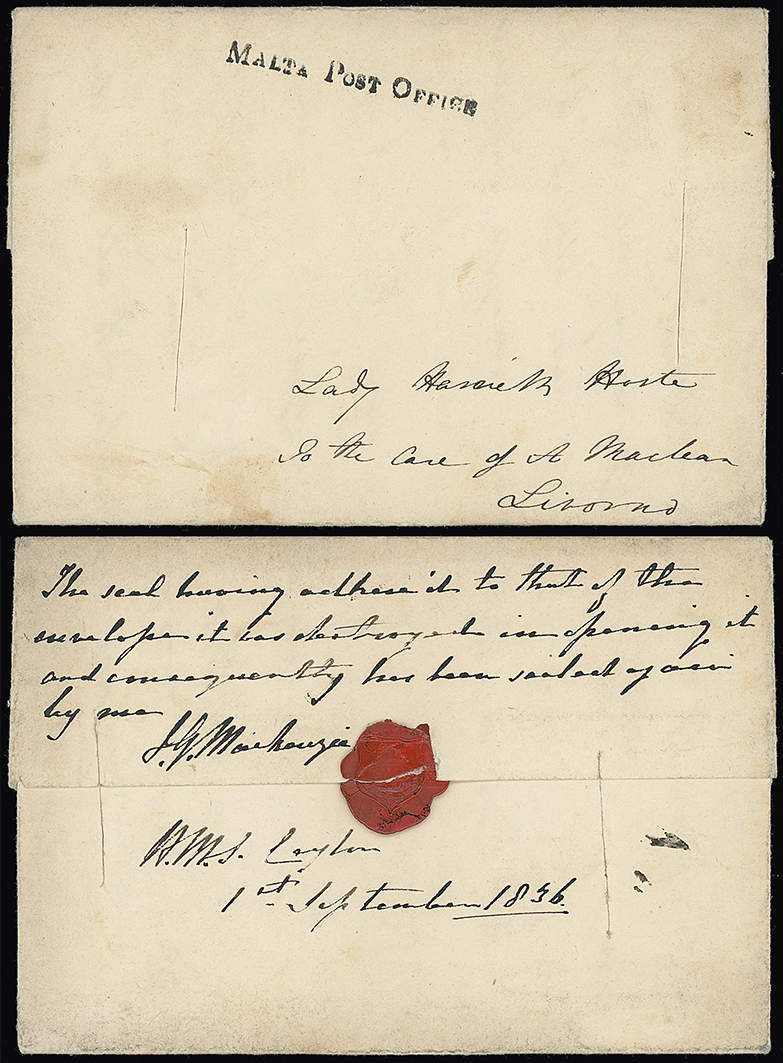 MALTA POST OFFICE
Lady Harriett Hoste
To the Care of A Maclean
Livorno
The seal having adhere'd to that of the
envelope it was destroyed in opening it
and consequently has been sealed again
by me
J.G. Mackenzie
H.M.S. Ceylon
1st September 1836.